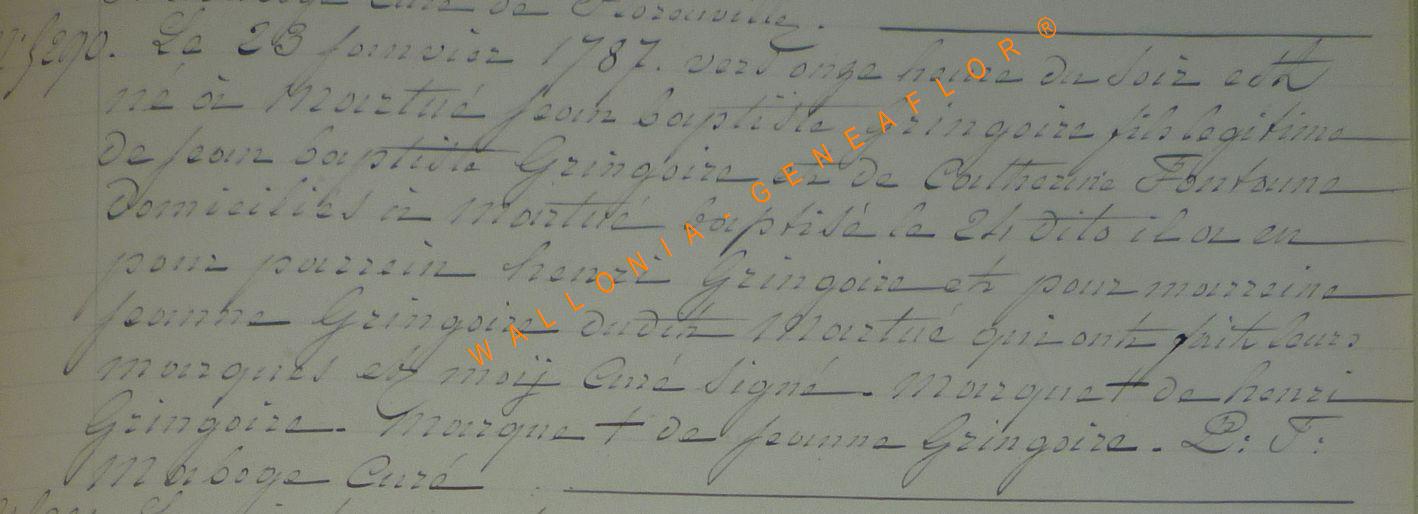 Curé de Florenville.
Le 23 janvier 1787. vers onze heure du soir est
né à Martué jean baptiste Gringoire fils legitime
de jean baptiste Gringoire et de Catherine Fontaine
domiciliés à Martué baptisé le 24 dito il a eu
pour parrein henri Gringoire et pour marreine
jeanne Gringoire dudit Martué qui ont fait leurs
marques et moij Curé signé. Marque + de henri
Gringoire. Marque + de jeanne Gringoire. P: F:
Maboge Curé
WALLONIA-GENEAFLOR®